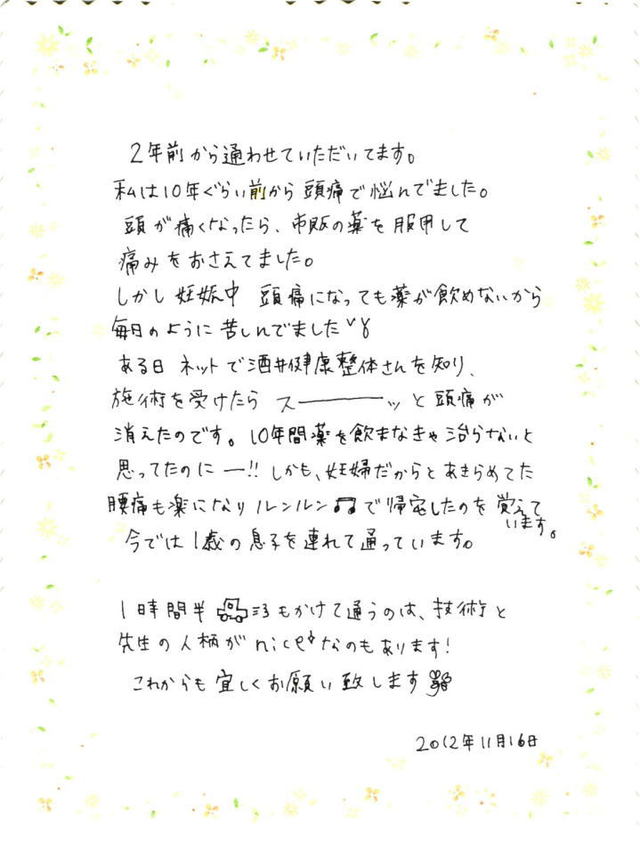 2年前から通わせていただいてます。
私は10年ぐらい前から頭痛で悩んでました。
頭が痛くなったら、市販の薬を服用して
痛みをおさえてました。
しかし妊娠中 頭痛になっても薬が飲めないから
毎日のように苦しんでました
ある日 ネットで酒井健康整体さんを知り、
施術を受けたら スーーーッと頭痛が
消えたのです。10年間薬を飲まなきゃ治らないと
思ってたのにー!! しかも、妊婦だからとあきらめてた
腰痛も楽になり ルンルン♫で帰宅したのを覚えて
います。
今では1歳の息子を連れて通っています。
1時間半もかけて通うのは、技術と
先生の人柄がniceなのもあります!
これからも宜しくお願い致します
2012年11月16日